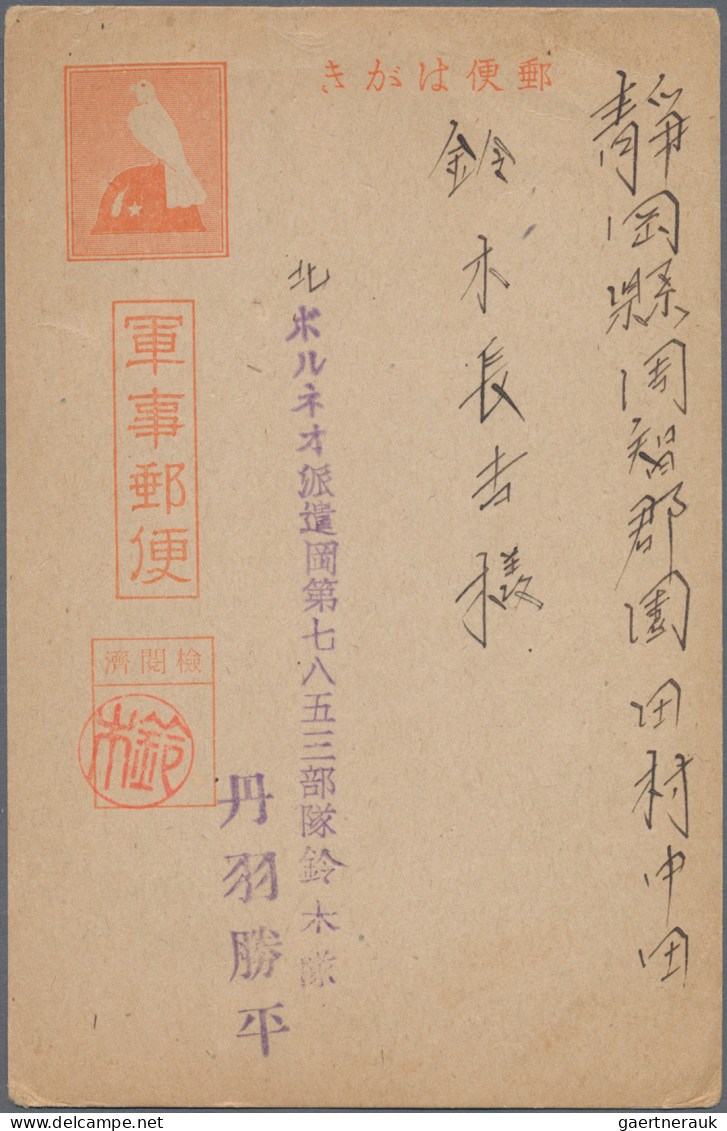 きがは便郵
靜岡縣周智郡園田村中田
鈴木長吉様
北ボルネオ派遣岡第七八五三部隊鈴木隊
丹羽勝平
軍事郵便
濟閲檢
鈴木
gaertnerauk